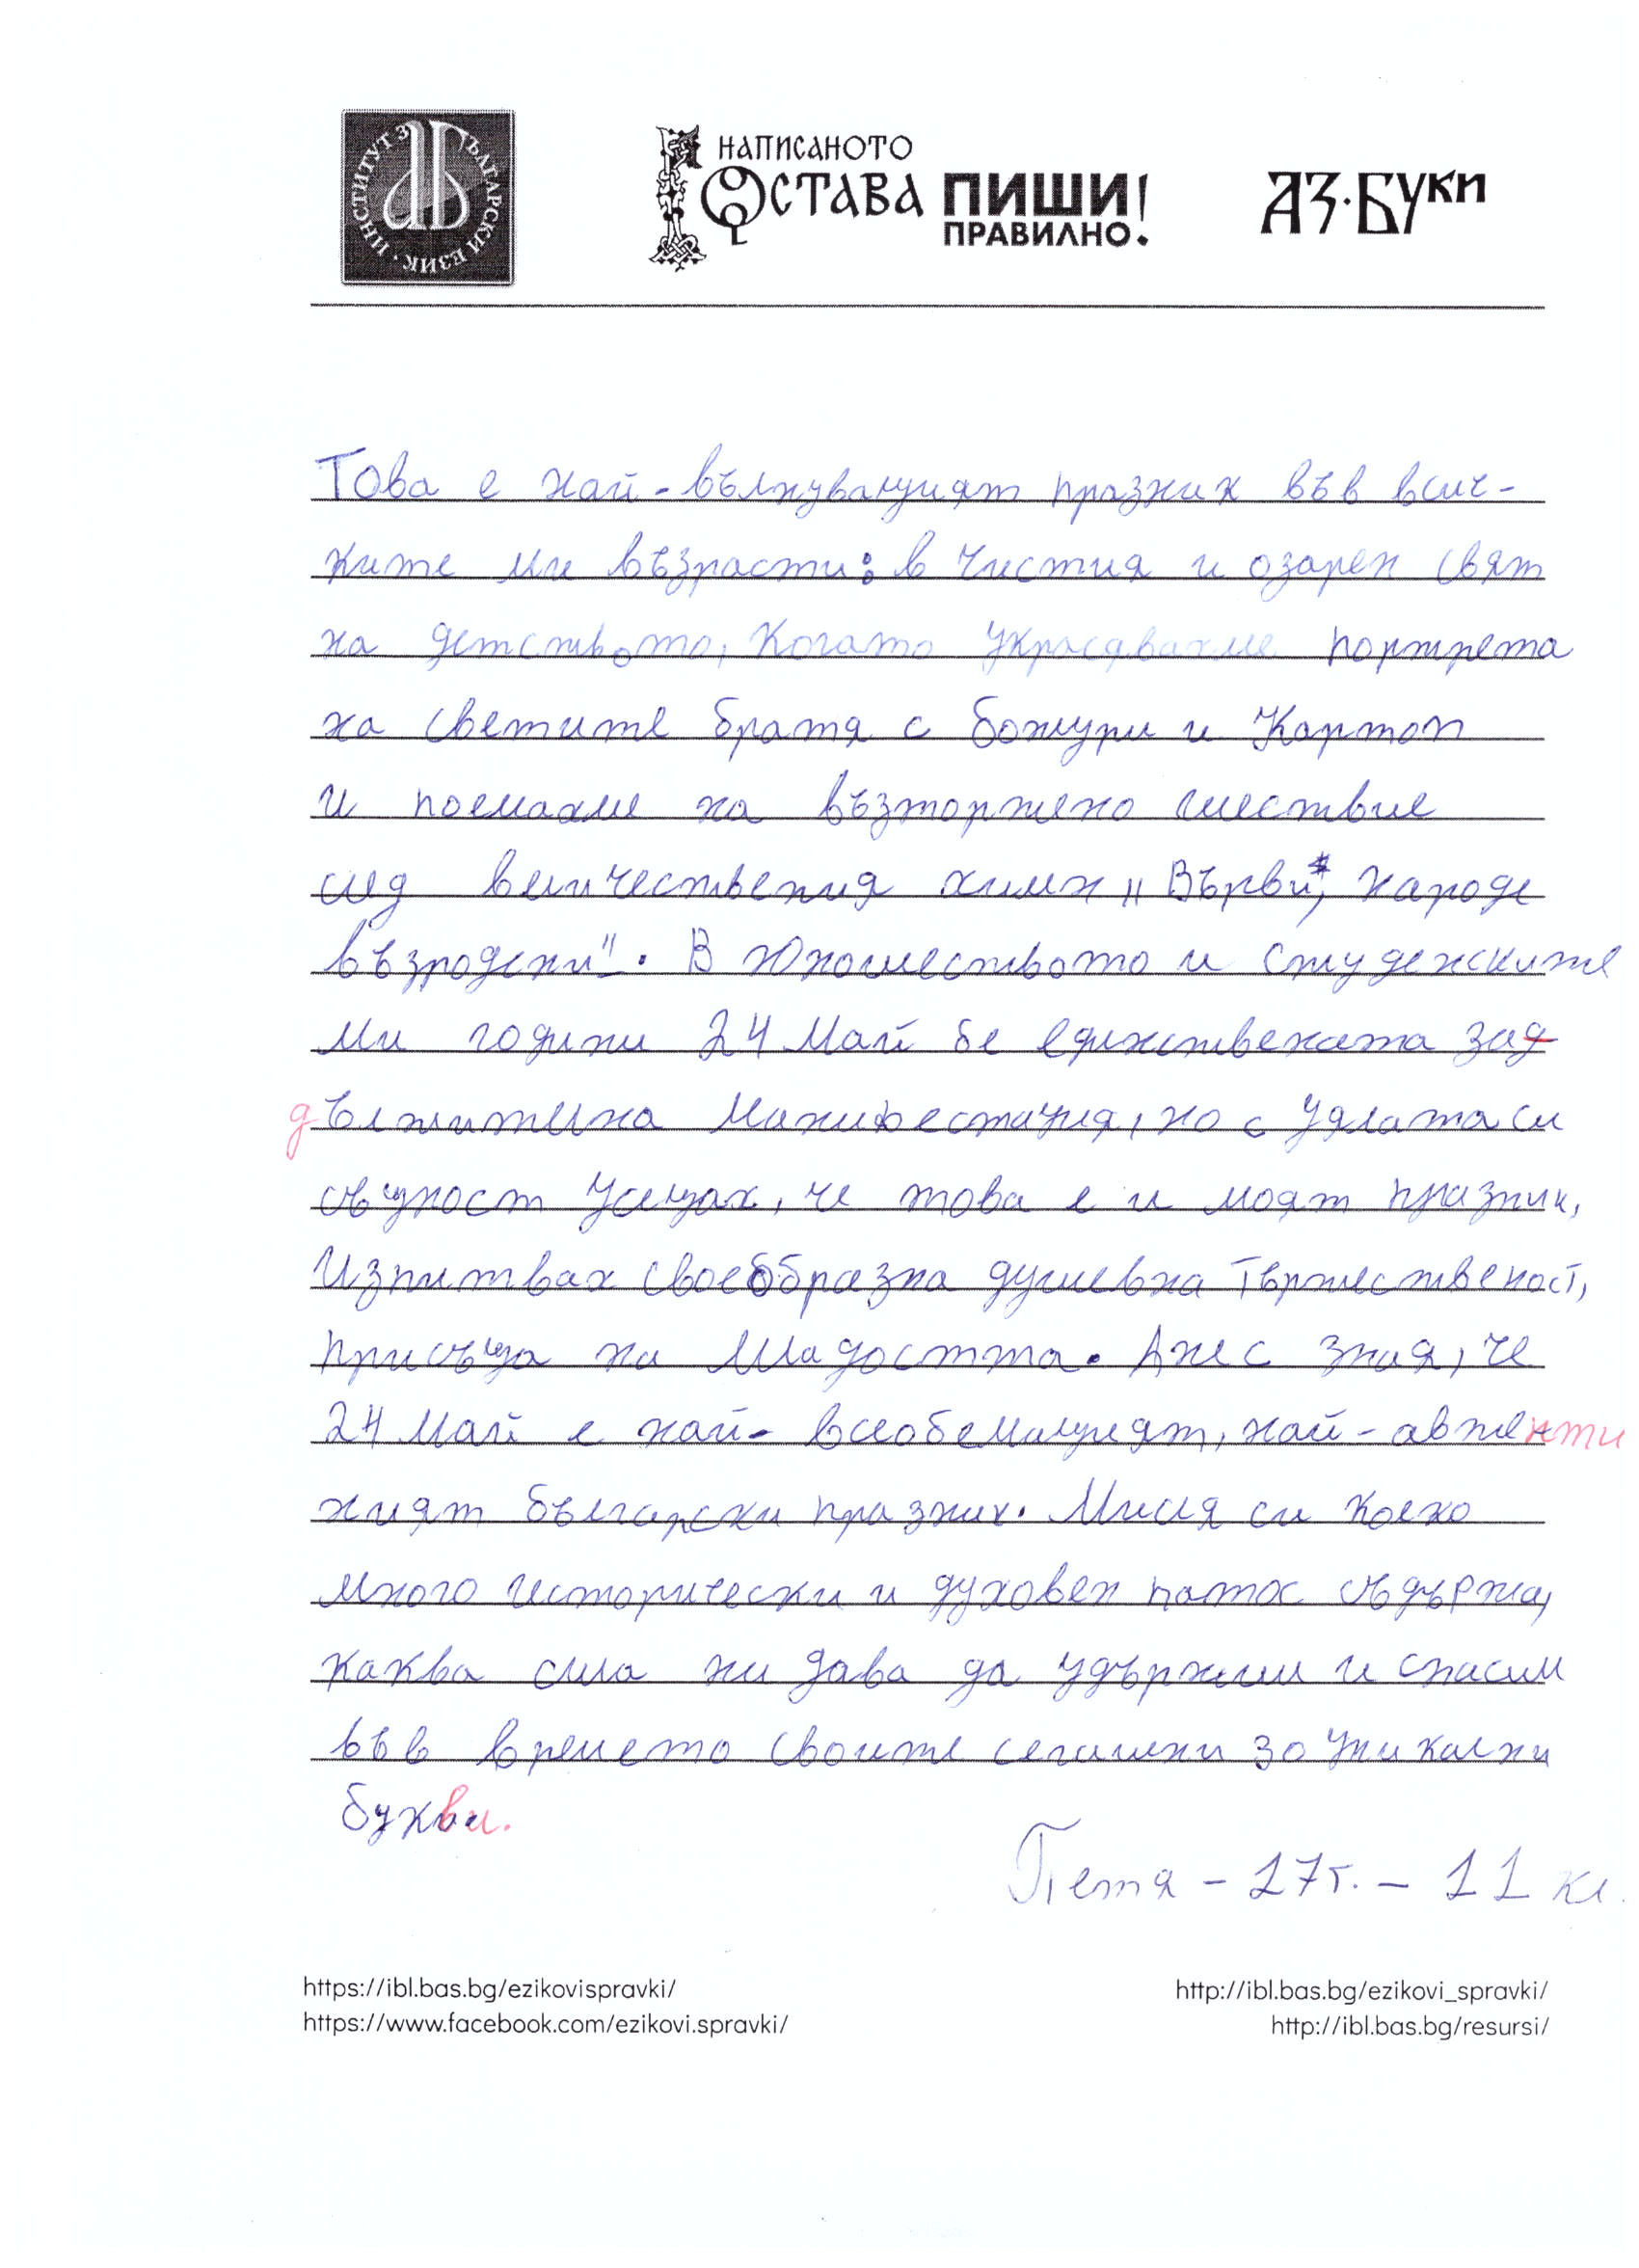 ИНСТИТУТ ЗА БЪЛГАРСКИ ЕЗИК
НАПИСАНОТО
ОСТАВА ПИШИ
ПРАВИЛНО!
АЗ·БУКИ
Това е най-вълнуващият празник във всич-
ките ми възрасти: в чистия и озарен свят
на детството, когато украсявахме портрета
на светите братя с божури и Картоп
и поемахме на възторжено шествие
след величествения химн „Върви, народе
възродени". В юношеството и студенските
ми години 24 Май бе единствената зад
дължителна манифестация, но с цялата си
същност усещах, че това е и моят празник,
Изпитвах своеобразна душевна тържественост,
присъща на младостта. Днес зная, че
24 Май е най-всеобемащият, най-автенти
ният български празник. Мисля си колко
много исторически и духовен патос съдържа,
каква сила ни дава да удържим и спасим
във времето своите сегашни за уникални
букви.
Петя - 17г. - 11 кл.
https://ibl.bas.bg/ezikovispravki/
https://www.facebook.com/ezikovi.spravki/
http://ibl.bas.bg/ezikovi_spravki/
http://ibl.bas.bg/resursi/